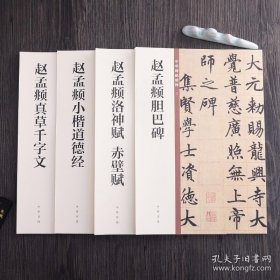 大元勅賜龍興寺大
覺普慈廣照無上帝
師之碑
集賢學士資德大
赵孟頫胆巴碑
赵孟頫洛神赋 赤壁赋
赵孟頫小楷道德经
赵孟頫真草千字文
孔夫子旧书网